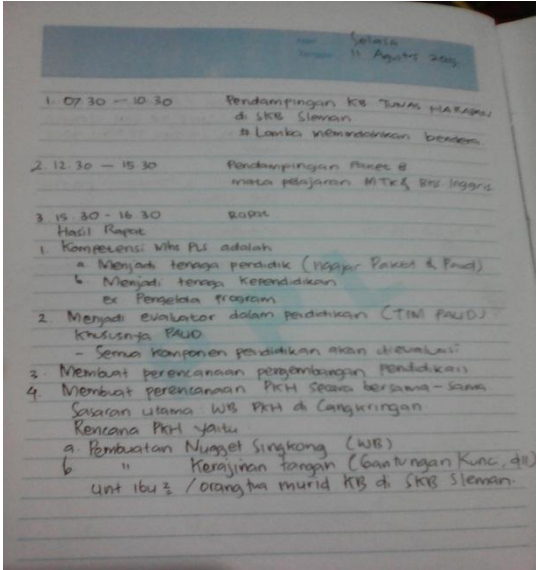 Selasa
11 Agustus 2015
1. 07.30 - 10.30 Pendampingan KB TUNAS HARAPAN
di SKB Sleman
Lomba memindahkan bendera.
2. 12.30 - 15.30 Pendampingan Paket B
mata pelajaran MTK & Bhs Inggris
3. 15.30 - 16.30 Rapat
Hasil Rapat
1. Kompetensi Mhs PLS adalah
a. Menjadi tenaga pendidik (ngajar Paket & Paud)
b. Menjadi tenaga Kependidikan
ex Pengelola Program
2. Menjadi evaluator dalam pendidikan (TIM PAUD)
Khususnya PAUD
- Semua komponen pendidikan akan dievaluasi
3. Membuat perencanaan pengembangan pendidikan
4. Membuat perencanaan PKH secara bersama-sama
Sasaran utama WB PKH di Cangkringan
Rencana PKH yaitu
a. Pembuatan Nugget Singkong (WB)
b. " Kerajinan tangan (Gantungan Kunc, dll)
unt ibu² / orang tua murid KB di SKB Sleman.